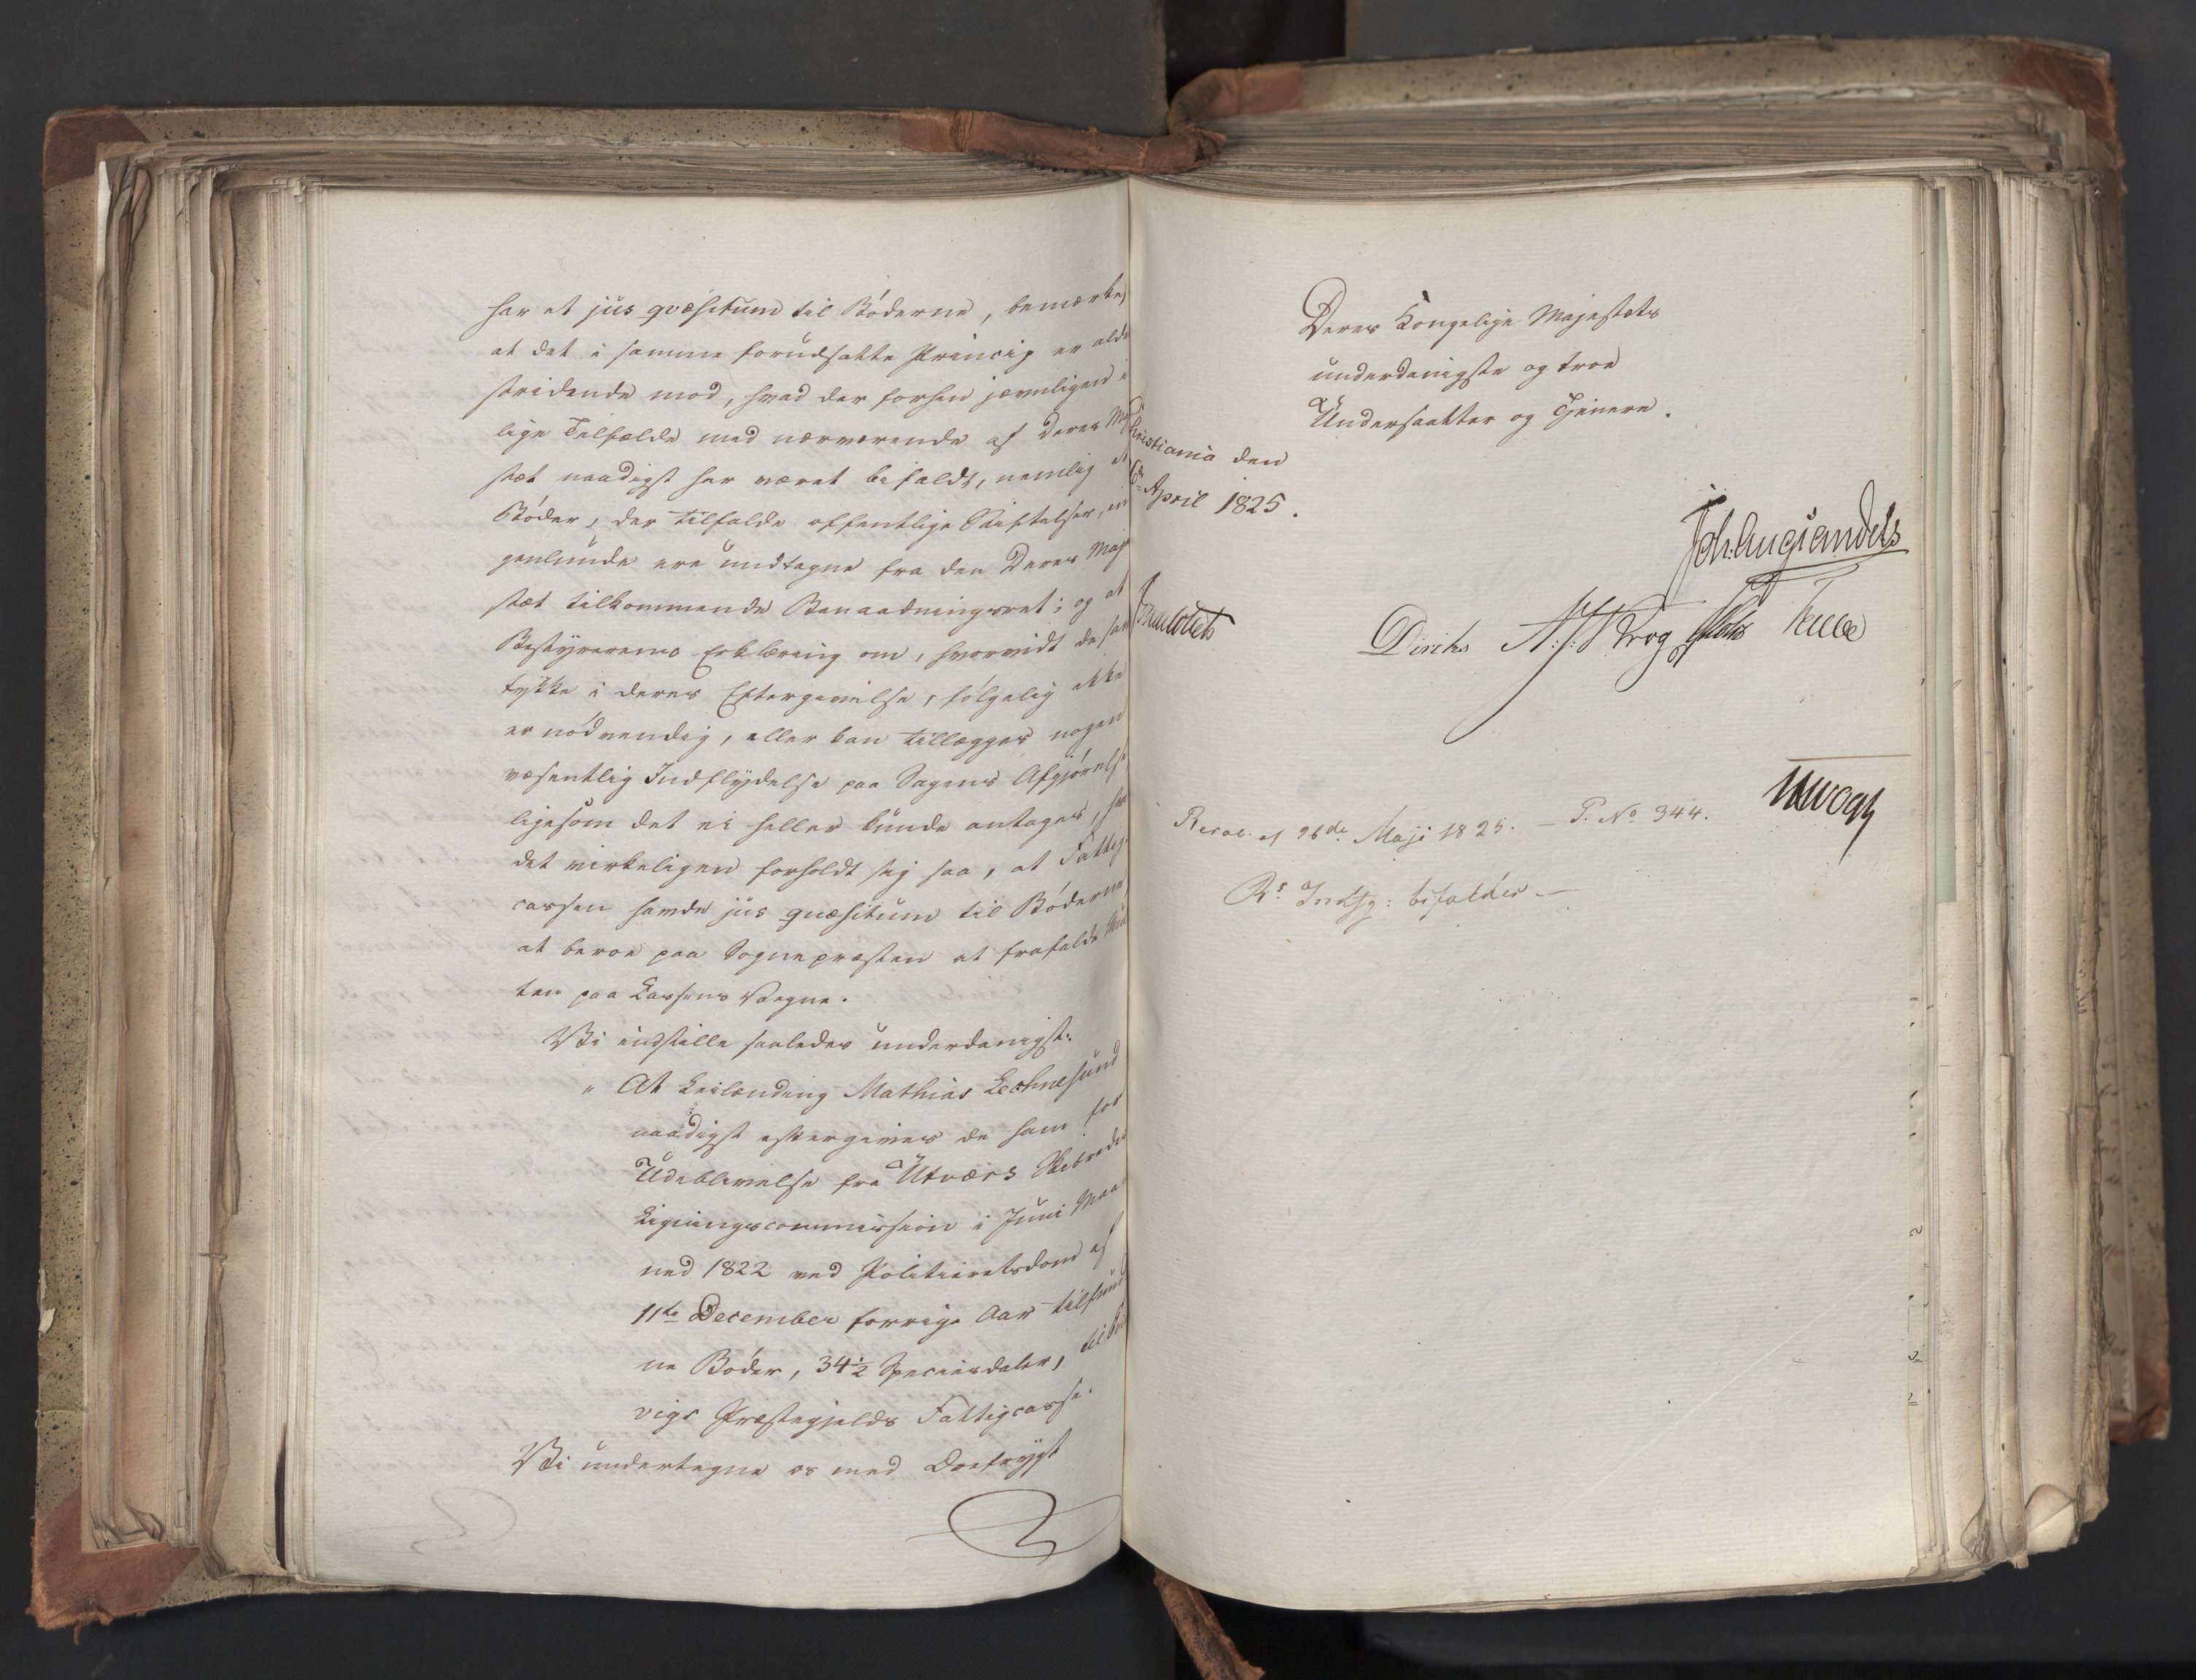 har et jus qvæsitum til Bøderne, bemærke,
at det i samme forudsatte Princip er alde
stridende mod, hvad der forhen jævnligen i
lige Tilfælde med nærværende af Deres Ma
stæt naadigst har været bifaldt, nemlig at
Bøder, der tilfalde offentlige Stiftelser, in
genlunde ere undtagne fra den Deres Maje
stæt tilkommende Benaadningsret; og at
Bestyrernes Erklæring om, hvorvidt de sam
tykke i deres Eftergivelse, følgelig ikke
er nødvendig, eller kan tillægges nogen
væsentlig Indflydelse paa Sagens Afgjørelse
ligesom det ei heller kunde antages, hvis
det virkeligen forholdt sig saa, at Fattig-
cassen havde jus quæsitum til Bøderne
at beroe paa Sognepræsten at frafalde Mul
ten paa Kassens Vegne.
Vi indstille saaledes underdanigst:
" At Leilænding Mathias
naadigst eftergives de ham for
Udeblivelse fra Utværs Skibrede
Ligningscommission i Juni Maa-
ned 1822 ved Politieretsdom af
11te December forrige Aar tilfund
ne Bøder, 34½ Speciesdaler, til
vigs Præstegjelds Fattigcasse.
Vi undertegne os med Dybfrygt
Deres Kongelige Majestæts
underdanigste og troe
Undersaatter og Tjenere.
Christiania den
6te April 1825.
Joh: Aug: Sandels
Diriks Krog
Resol. af 26de Maji 1825. — P. No 344.
Rs Indstg: bifaldes —